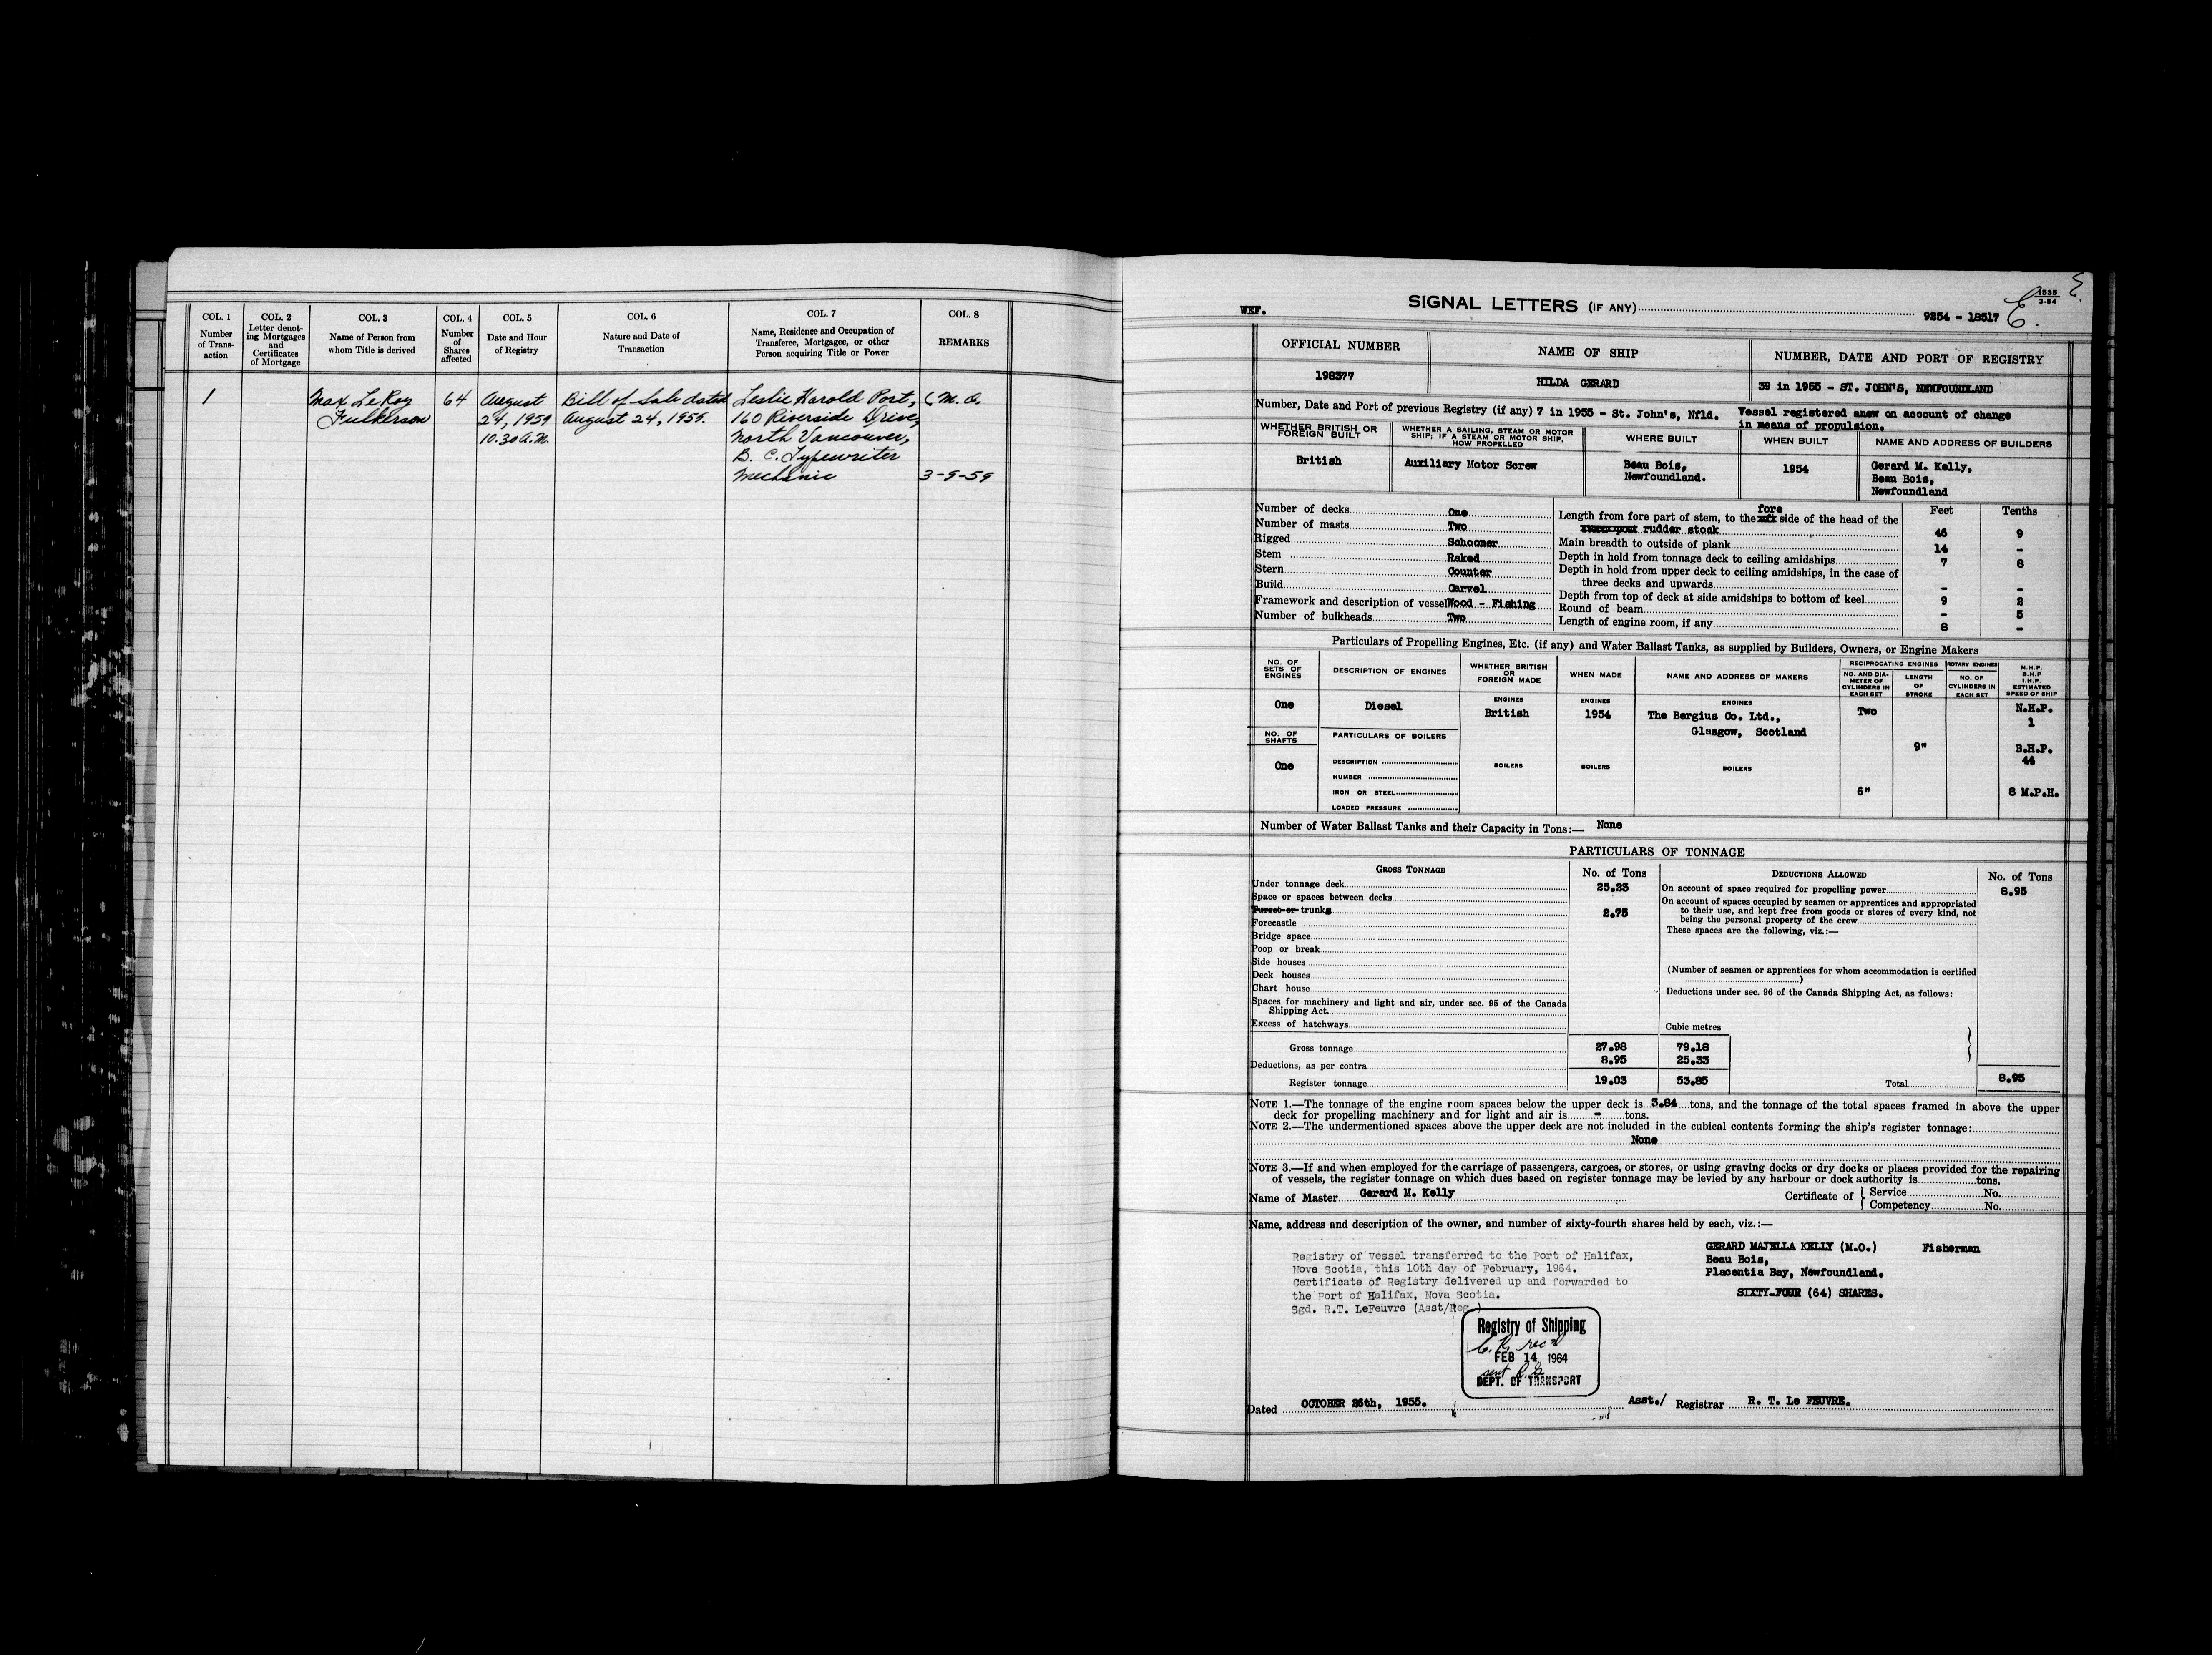 COL. 1 COL. 2 COL. 3 COL. 4 COL. 5 COL. 6 COL. 7 COL. 8
Number of Trans-action
Letter denot-ing Mortgages and Certificates of Mortgage
Name of Person from whom Title is derived
Number of Shares affected
Date and Hour of Registry
Nature and Date of Transaction
Name, Residence and Occupation of Transferee, Mortgagee, or other Person acquiring Title or Power
REMARKS
1 Max LeRoy 64 August Bill of Sale dated Leslie Harold Port, (M.O.
Fulkerson 24, 1959 August 24, 1959. 160 Riverside Drive,
10.30 A.M. North Vancouver,
B. C. Typewriter
Mechanic 3-9-59
1535
3-54
WEF. SIGNAL LETTERS (IF ANY) 9254 - 18517
OFFICIAL NUMBER NAME OF SHIP NUMBER, DATE AND PORT OF REGISTRY
198377 HILDA GERARD 39 in 1955 - ST. JOHN'S, NEWFOUNDLAND
Number, Date and Port of previous Registry (if any) 7 in 1955 - St. John's, Nfld. Vessel registered anew on account of change
in means of propulsion.
WHETHER BRITISH OR FOREIGN BUILT
WHETHER A SAILING, STEAM OR MOTOR SHIP; IF A STEAM OR MOTOR SHIP, HOW PROPELLED
WHERE BUILT WHEN BUILT NAME AND ADDRESS OF BUILDERS
British Auxiliary Motor Screw Beau Bois, 1954 Gerard M. Kelly,
Newfoundland. Beau Bois,
Newfoundland
Number of decks One
Number of masts Two
Rigged Schooner
Stem Raked
Stern Counter
Build Carvel
Framework and description of vessel Wood - Fishing
Number of bulkheads Two
Feet Tenths
Length from fore part of stem, to the fore side of the head of the
rudder stock 46 9
Main breadth to outside of plank 14 -
Depth in hold from tonnage deck to ceiling amidships 7 8
Depth in hold from upper deck to ceiling amidships, in the case of
three decks and upwards - -
Depth from top of deck at side amidships to bottom of keel 9 2
Round of beam - 5
Length of engine room, if any 8 -
Particulars of Propelling Engines, Etc. (if any) and Water Ballast Tanks, as supplied by Builders, Owners, or Engine Makers
NO. OF SETS OF ENGINES
DESCRIPTION OF ENGINES
WHETHER BRITISH OR FOREIGN MADE
WHEN MADE
NAME AND ADDRESS OF MAKERS
RECIPROCATING ENGINES ROTARY ENGINES
NO. AND DIA-METER OF CYLINDERS IN EACH SET
LENGTH OF STROKE
NO. OF CYLINDERS IN EACH SET
N.H.P. B.H.P I.H.P. ESTIMATED SPEED OF SHIP
ENGINES ENGINES ENGINES
One Diesel British 1954 The Bergius Co. Ltd., Two N.H.P.
Glasgow, Scotland 1
NO. OF SHAFTS PARTICULARS OF BOILERS 9" B.H.P.
44
One DESCRIPTION BOILERS BOILERS BOILERS
NUMBER
IRON OR STEEL 6" 8 M.P.H.
LOADED PRESSURE
Number of Water Ballast Tanks and their Capacity in Tons:— None
PARTICULARS OF TONNAGE
GROSS TONNAGE No. of Tons DEDUCTIONS ALLOWED No. of Tons
Under tonnage deck 25.23
Space or spaces between decks
Turret or trunks 2.75
Forecastle
Bridge space
Poop or break
Side houses
Deck houses
Chart house
Spaces for machinery and light and air, under sec. 95 of the Canada
Shipping Act.
Excess of hatchways
On account of space required for propelling power 8.95
On account of spaces occupied by seamen or apprentices and appropriated
to their use, and kept free from goods or stores of every kind, not
being the personal property of the crew
These spaces are the following, viz.:—
(Number of seamen or apprentices for whom accommodation is certified
)
Deductions under sec. 96 of the Canada Shipping Act, as follows:
Cubic metres
Gross tonnage 27.98 79.18
Deductions, as per contra 8.95 25.33
Register tonnage 19.03 53.85 Total 8.95
NOTE 1.—The tonnage of the engine room spaces below the upper deck is 3.84 tons, and the tonnage of the total spaces framed in above the upper
deck for propelling machinery and for light and air is - tons.
NOTE 2.—The undermentioned spaces above the upper deck are not included in the cubical contents forming the ship's register tonnage:
None
NOTE 3.—If and when employed for the carriage of passengers, cargoes, or stores, or using graving docks or dry docks or places provided for the repairing
of vessels, the register tonnage on which dues based on register tonnage may be levied by any harbour or dock authority is tons.
Name of Master Gerard M. Kelly Certificate of Service No.
Competency No.
Name, address and description of the owner, and number of sixty-fourth shares held by each, viz.:—
GERARD MAJELLA KELLY (M.O.) Fisherman
Beau Bois,
Placentia Bay, Newfoundland.
SIXTY-FOUR (64) SHARES.
Registry of Vessel transferred to the Port of Halifax,
Nova Scotia, this 10th day of February, 1964.
Certificate of Registry delivered up and forwarded to
the Port of Halifax, Nova Scotia.
Sgd. R.T. LeFeuvre (Asst/Reg.)
Registry of Shipping
C.R. rec'd
FEB 14 1964
sent
DEPT. OF TRANSPORT
Dated OCTOBER 26th, 1955. Asst./ Registrar R. T. Le FEUVRE.